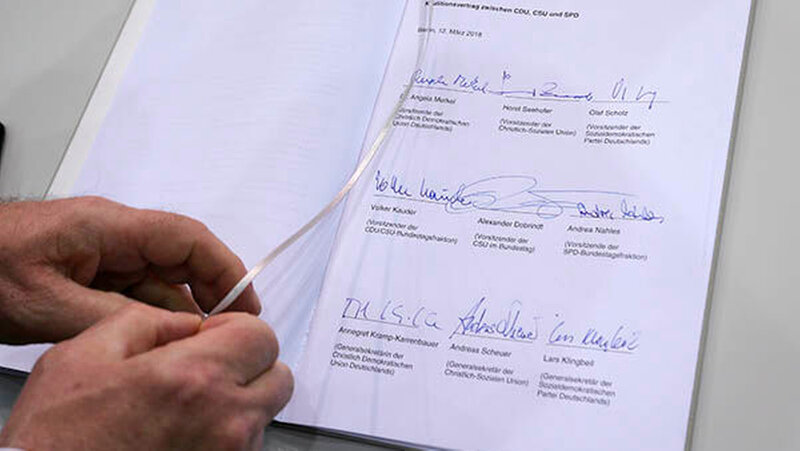 Koalitionsvertrag zwischen CDU, CSU und SPD
Berlin, 12. März 2018
Angela Merkel
Horst Seehofer
Olaf Scholz
(Vorsitzende der
Christlich Demokratischen
Union Deutschlands)
(Vorsitzender der
Christlich-Sozialen Union)
(Vorsitzender der
Sozialdemokratischen
Partei Deutschlands)
Volker Kauder
Volker Kauder
Alexander Dobrindt
Andrea Nahles
Andrea Nahles
(Vorsitzender der
CDU/CSU-Bundestagsfraktion)
(Vorsitzender der
CSU im Bundestag)
(Vorsitzende der
SPD-Bundestagsfraktion)
Andreas Scheuer
Lars Klingbeil
Annegret Kramp-Karrenbauer
Andreas Scheuer
Lars Klingbeil
(Generalsekretärin der
Christlich Demokratischen
Union Deutschlands)
(Generalsekretär der
Christlich-Sozialen Union)
(Generalsekretär der
Sozialdemokratischen
Partei Deutschlands)